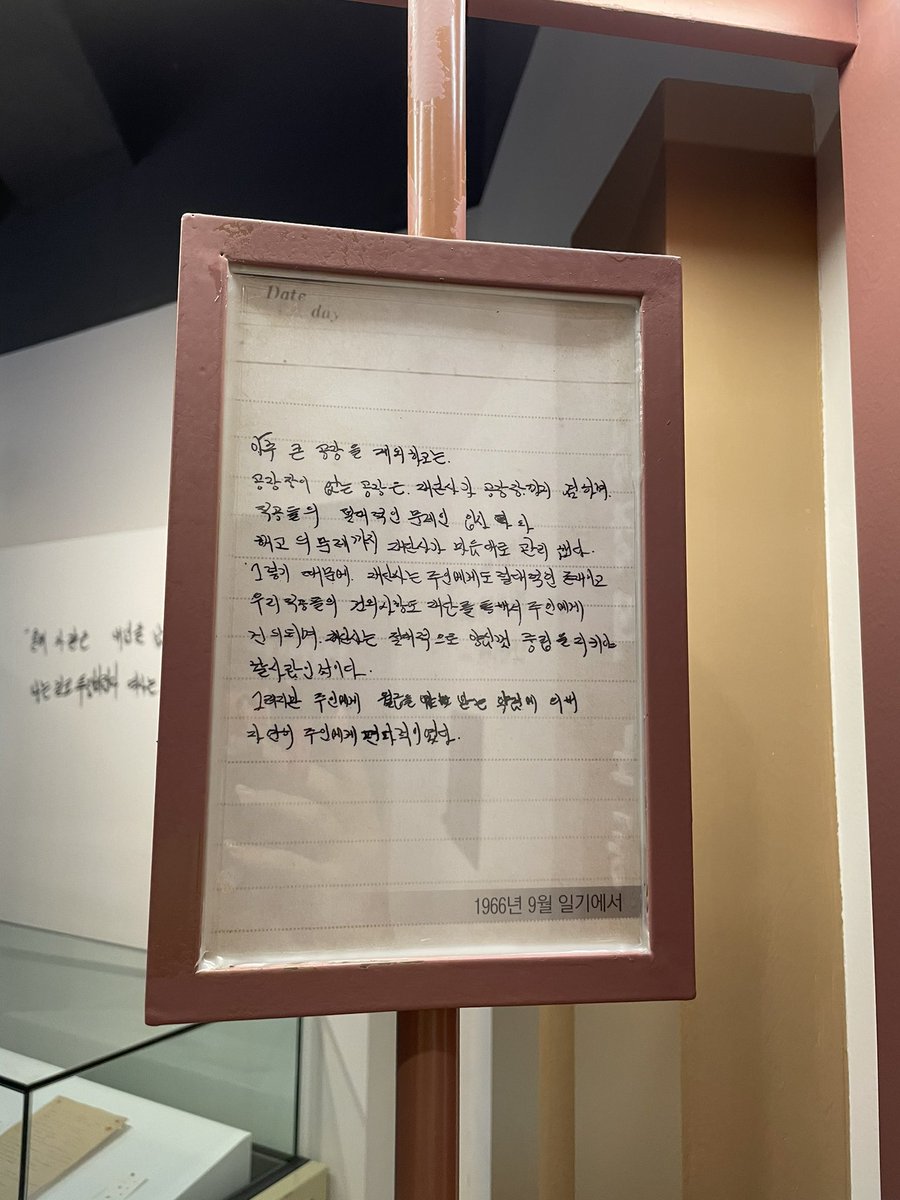 Date
day
아주 큰 공장을 제외하고는.
공장장이 없는 공장은. 재단사가 공장장까지 겸하며.
직공들의 절대적인 문제인 임신
해고의 문제까지 재단사가 마음대로 관리 했다.
그렇기 때문에. 재단사는 주인에게도 절대적인 존재이고
우리 직공들의 건의사항도 재단를 통해서 주인에게
건의되며. 재단사는 절대적으로 양심껏 중립을 지키야
할 사람인 것이다.
그러지만 주인에게 월급을 받는 약점에 의해
자연히 주인에게 편파적이었다.
1966년 9월 일기에서
나는